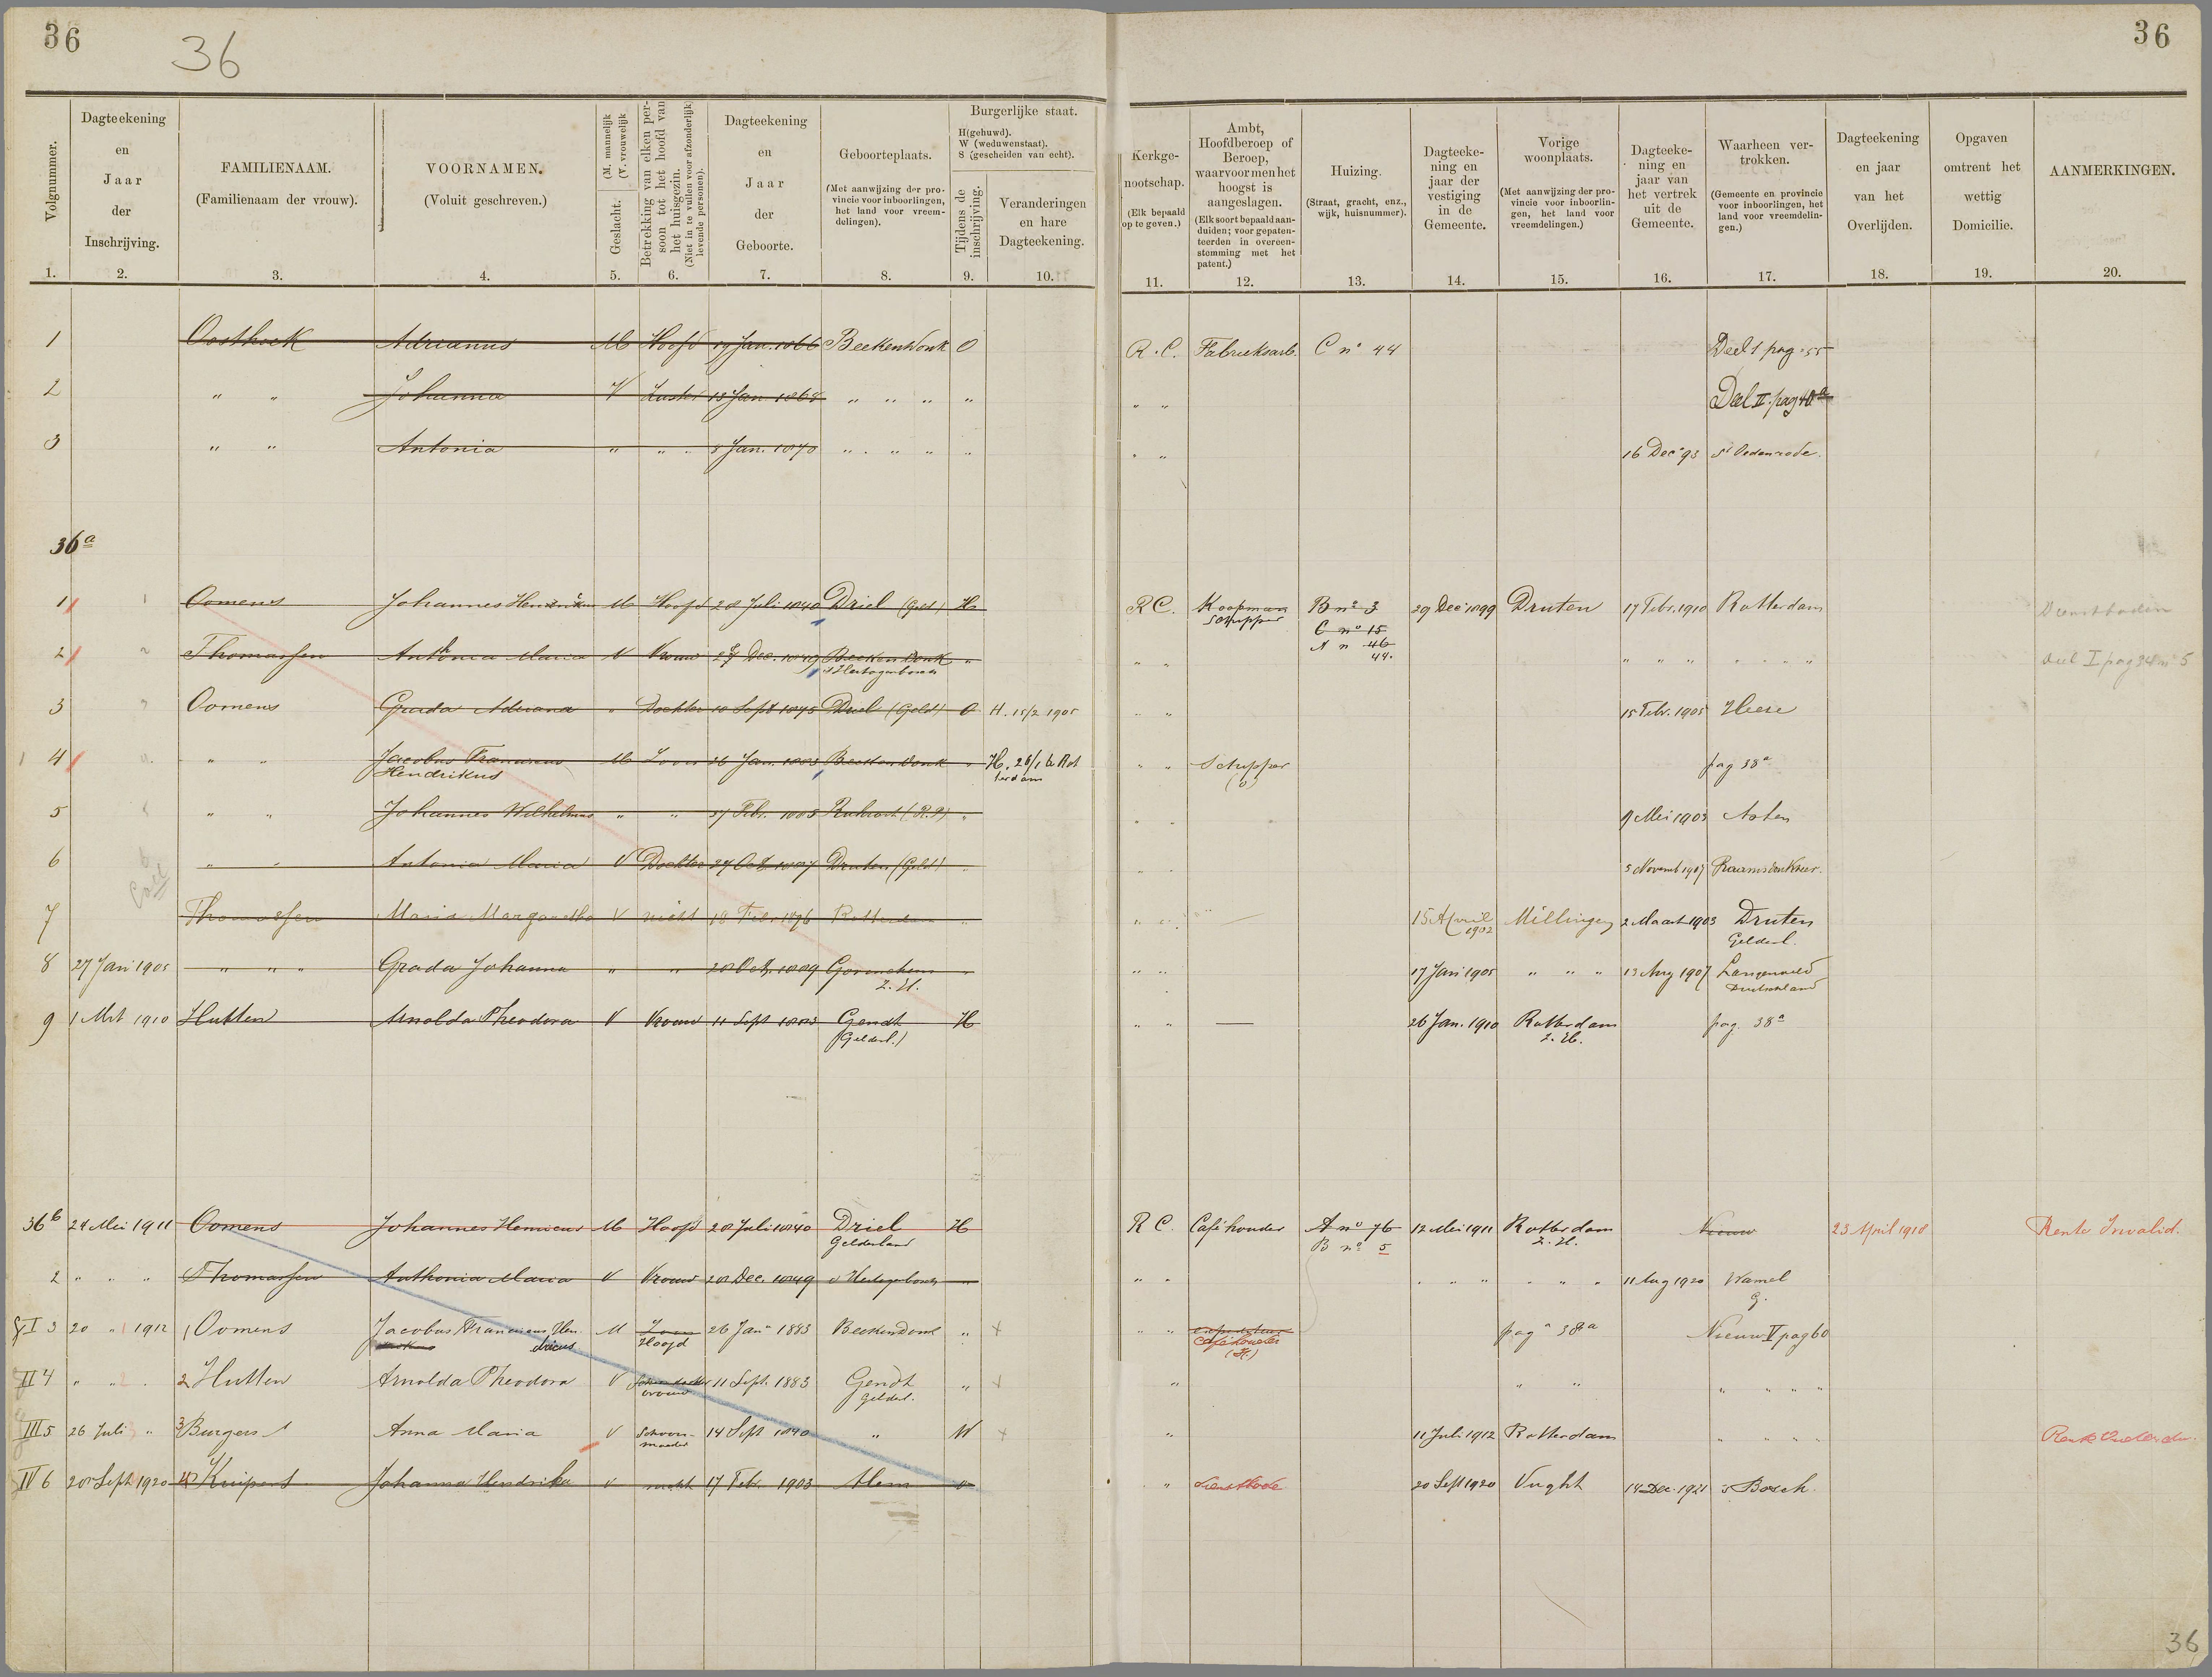 36
36
36
Volgnummer.
1.
Dagteekening
en
Jaar
der
Inschrijving.
2.
FAMILIENAAM.
(Familienaam der vrouw).
3.
VOORNAMEN.
(Voluit geschreven.)
4.
(M. mannelijk
(V. vrouwelijk
Geslacht.
5.
Betrekking van elken per-
soon tot het hoofd van
het huisgezin.
(Niet in te vullen voor afzonderlijk
levende personen).
6.
Dagteekening
en
Jaar
der
Geboorte.
7.
Geboorteplaats.
(Met aanwijzing der pro-
vincie voor inboorlingen,
het land voor vreem-
delingen).
8.
Burgerlijke staat.
H(gehuwd).
W (weduwenstaat).
S (gescheiden van echt).
Tijdens de
inschrijving.
9.
Veranderingen
en hare
Dagteekening.
10.
Kerkge-
nootschap.
(Elk bepaald
op te geven.)
11.
Ambt,
Hoofdberoep of
Beroep,
waarvoor men het
hoogst is
aangeslagen.
(Elk soort bepaald aan-
duiden; voor gepaten-
teerden in overeen-
stemming met het
patent.)
12.
Huizing.
(Straat, gracht, enz.,
wijk, huisnummer).
13.
Dagteeke-
ning en
jaar der
vestiging
in de
Gemeente.
14.
Vorige
woonplaats.
(Met aanwijzing der pro-
vincie voor inboorlin-
gen, het land voor
vreemdelingen.)
15.
Dagteeke-
ning en
jaar van
het vertrek
uit de
Gemeente.
16.
Waarheen ver-
trokken.
(Gemeente en provincie
voor inboorlingen, het
land voor vreemdelin-
gen.)
17.
Dagteekening
en jaar
van het
Overlijden.
18.
Opgaven
omtrent het
wettig
Domicilie.
19.
AANMERKINGEN.
20.
1 Oosthoek Adrianus M Hoofd 19 Jan. 1866 Beekendonk O R.C. Fabrieksarb. C no 44 Deel 1 pag. 55
2 " " Johanna V Zuster 13 Jan 1868 " " " " " " Deel II pag 40a
3 " " Antonia " " " 8 Jan. 1870 " " " " " " " 16 Dec 93 St Oedenrode.
36a
1 Oomens Johannes Hendrikus M Hoofd 28 Juli 1840 Driel (Geld) H RC. Koopman B no 3 29 Dec 1899 Druten 17 Febr. 1910 Rotterdam Dienstboden
Schipper C no 15
2 Thomassen Anthonia Maria V Vrouw 28 Dec. 1849 Beekendonk " A n 46 " " " " " " " " " deel I pag 34 no 5
's Hertogenbosch 44.
3 Oomens Grada Adriana " Dochter 10 Sept 1875 Driel (Geld) O H. 15/2 1905 " " 15 Febr. 1905 Heese
4 " " Jacobus Franciscus M Zoon 26 Jan. 1883 Beekendonk " H. 26/1 te Rot " " Schipper pag 38a
Hendrikus terdam (o)
5 " " Johannes Wilhelmus " " 27 Febr. 1885 Ruhrort (R.P) " " " 9 Mei 1903 Asten
6 " " Antonia Maria V Dochter 27 Oct. 1887 Druten (Geld) " " " 5 Novemb 1907 Raamsdonkveer.
7 Thomassen Maria Margaretha V nicht 18 Feb. 1896 Rotterdam " " " 15 April Millingen 2 Maart 1903 Druten
1902 Gelderl.
8 27 Jan 1905 " " " Grada Johanna " " 20 Oct. 1889 Gorinchem " " " 17 Jan 1905 " " " 13 Aug 1907
Z. H. Duitschland
9 1 Mrt 1910 Hutten Arnolda Theodora V Vrouw 11 Sept 1883 Gendt H " " — 26 Jan. 1910 Rotterdam pag. 38a
(Gelderl.) Z. H.
36b 24 Mei 1911 Oomens Johannes Henricus M Hoofd 28 Juli 1840 Driel H R C. Caféhouder A no 76 12 Mei 1911 Rotterdam Nieuw 23 April 1918 Rente Invalid.
Gelderland B no 5 Z. H.
2 " " " Thomassen Anthonia Maria V Vrouw 28 Dec. 1849 's Hertogenbosch " " " " " " " " " 11 Aug 1920 Wamel
G.
I 3 20 " 1912 1 Oomens Jacobus Franciscus Hen M Zoon 26 Jan 1883 Beekendonk " + " " pag 38a Nieuw V pag 60
dricus Hoofd Caféhouder
(H.)
II 4 " " " 2 Hutten Arnolda Theodora V 11 Sept. 1883 Gendt " + " " " " " " "
vrouw Gelderl.
III 5 26 Juli " 3 Burgers Anna Maria V Schoon- 14 Sept 1840 " W + " 11 Juli 1912 Rotterdam " " " "
moeder
IV 6 20 Sept 1920 4 Kuipers Johanna Hendrika V nicht 17 Febr. 1903 Alem O " dienstbode 20 Sept 1920 Vught 14 Dec. 1921 's Bosch
36